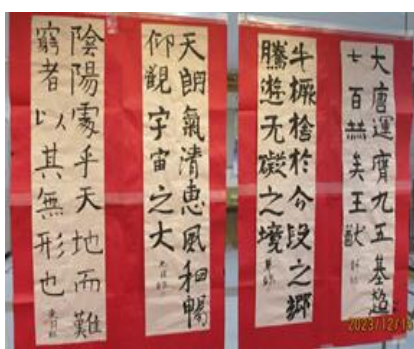 大唐運齊九五基超
七百赫矣王猷
牛橛捨於分段之鄉
騰遊无礙之境
天朗氣清惠風和暢
仰觀宇宙之大
陰陽處乎天地而難
窮者以其無形也
2023/12/16